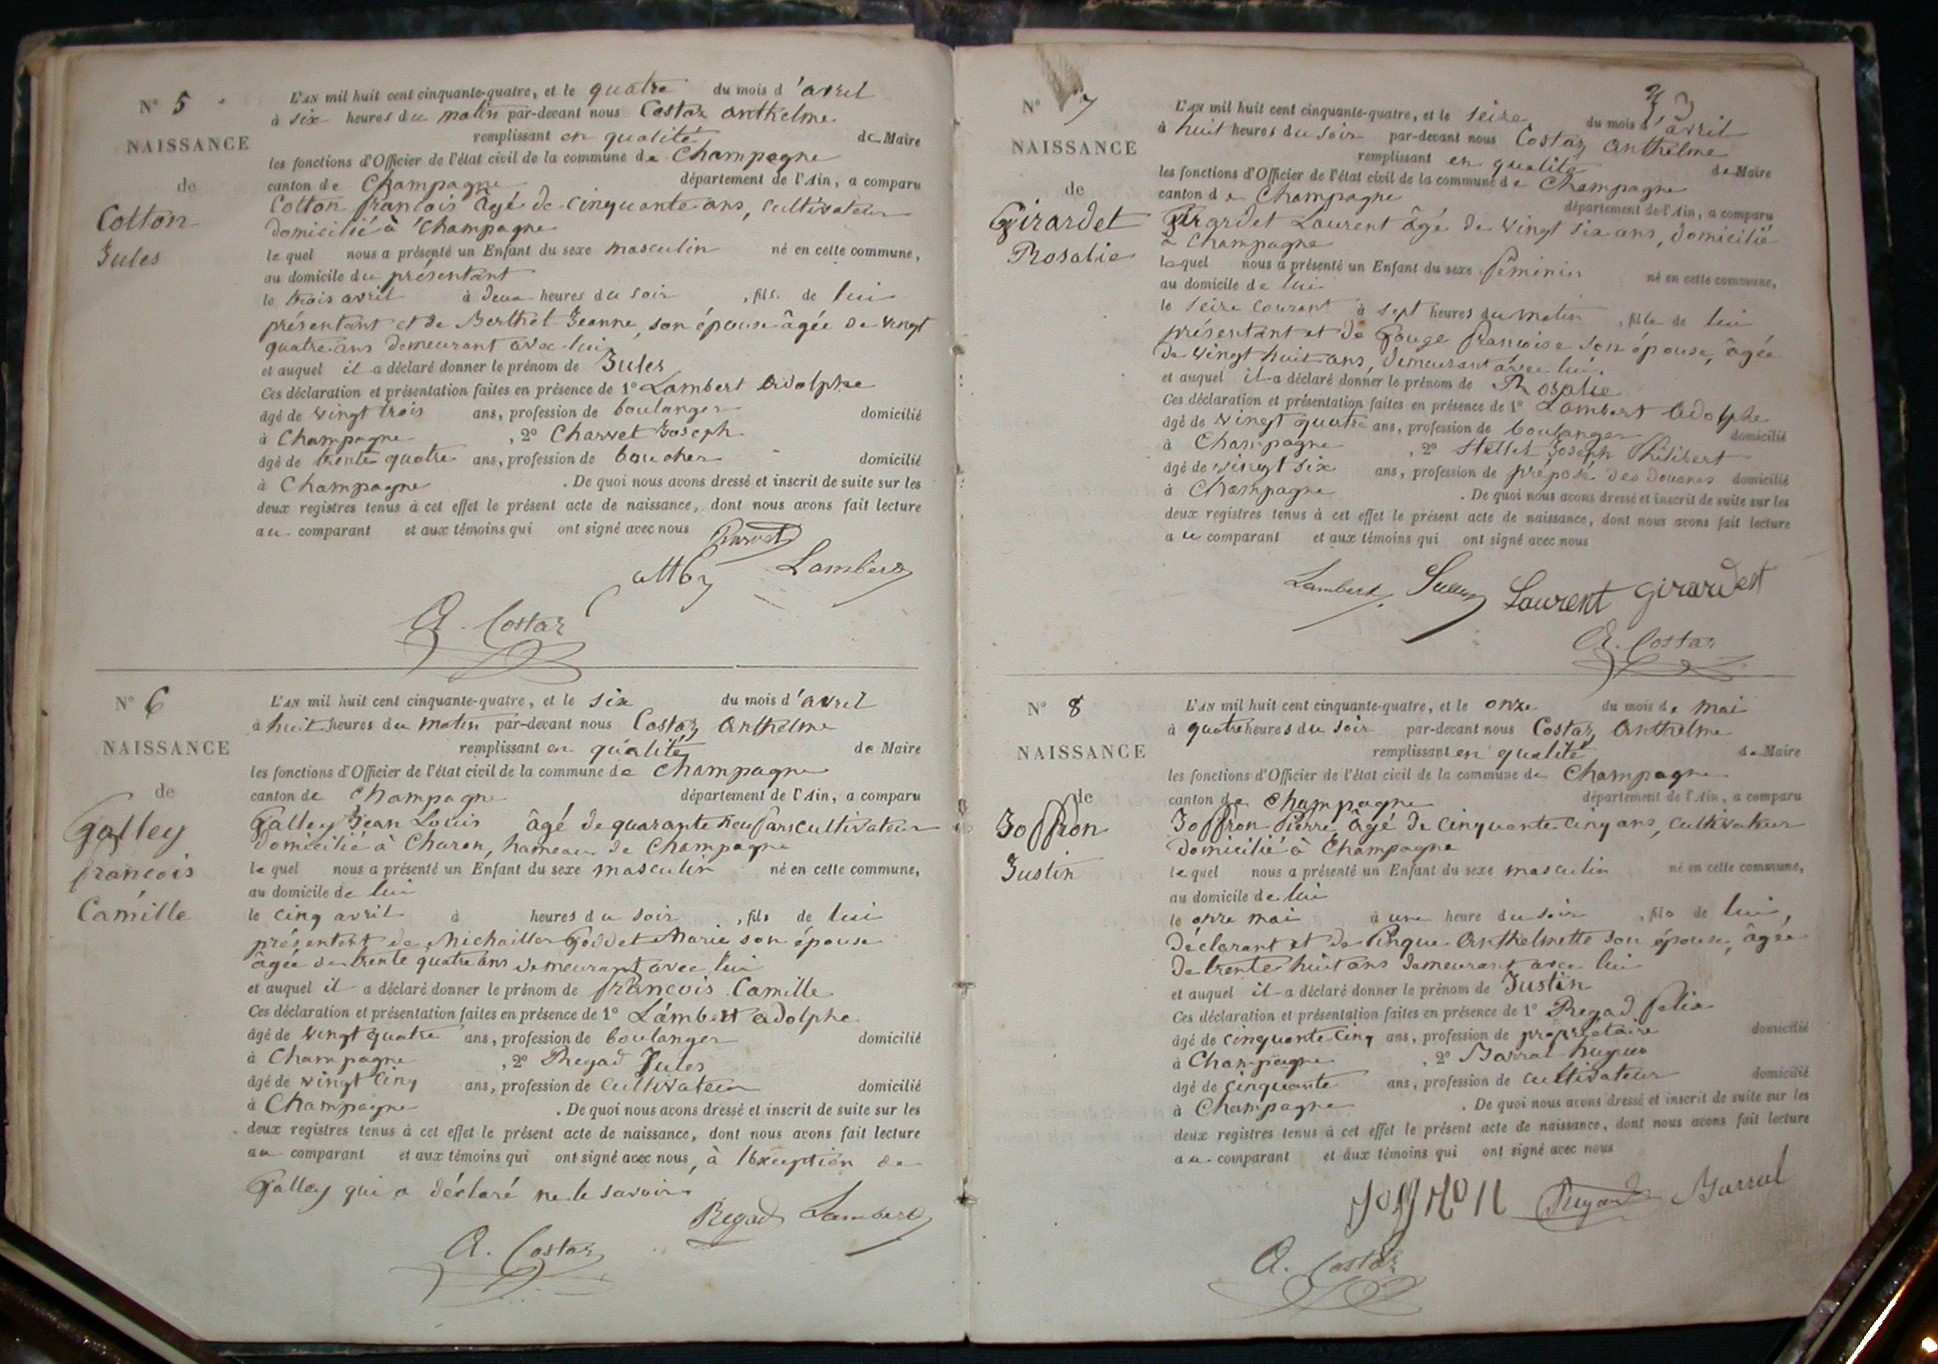 N° 5
NAISSANCE
de
Cotton
Jules
L'AN mil huit cent cinquante-quatre, et le quatre du mois d'avril
à six heures du matin par-devant nous Costaz Anthelme
remplissant en qualité de Maire
les fonctions d'Officier de l'état civil de la commune de Champagne
canton de Champagne département de l'Ain, a comparu
Cotton françois âgé de cinquante ans, cultivateur
domicilié à Champagne
lequel nous a présenté un Enfant du sexe masculin né en cette commune,
au domicile du présentant
le trois avril à deux heures du soir, fils de lui
présentant et de Berthet Jeanne, son épouse âgée de vingt
quatre ans demeurant avec lui
et auquel il a déclaré donner le prénom de Jules
Ces déclaration et présentation faites en présence de 1° Lambert Adolphe
âgé de vingt trois ans, profession de boulanger domicilié
à Champagne, 2° Charvet Joseph
âgé de trente quatre ans, profession de boucher domicilié
à Champagne. De quoi nous avons dressé et inscrit de suite sur les
deux registres tenus à cet effet le présent acte de naissance, dont nous avons fait lecture
au comparant et aux témoins qui ont signé avec nous
Lambert
A. Costaz
N° 6
NAISSANCE
de
Galley
françois
Camille
L'AN mil huit cent cinquante-quatre, et le six du mois d'avril
à huit heures du matin par-devant nous Costaz Anthelme
remplissant en qualité de Maire
les fonctions d'Officier de l'état civil de la commune de Champagne
canton de Champagne département de l'Ain, a comparu
Galley Jean Louis âgé de quarante neuf ans cultivateur
domicilié à Charon, hameau de Champagne
lequel nous a présenté un Enfant du sexe masculin né en cette commune,
au domicile de lui
le cinq avril à heures du soir, fils de lui
présentant de Michaillet Goddet Marie son épouse
âgée de trente quatre ans demeurant avec lui
et auquel il a déclaré donner le prénom de françois Camille
Ces déclaration et présentation faites en présence de 1° Lambert Adolphe
âgé de vingt quatre ans, profession de boulanger domicilié
à Champagne, 2° Regad Jules
âgé de vingt cinq ans, profession de cultivateur domicilié
à Champagne. De quoi nous avons dressé et inscrit de suite sur les
deux registres tenus à cet effet le présent acte de naissance, dont nous avons fait lecture
au comparant et aux témoins qui ont signé avec nous, à l'exception de
Galley qui a déclaré ne le savoir
Regad Lambert
A. Costaz
N° 7
NAISSANCE
de
Girardet
Rosalie
L'AN mil huit cent cinquante-quatre, et le seize du mois d'avril
à huit heures du soir par-devant nous Costaz Anthelme
remplissant en qualité de Maire
les fonctions d'Officier de l'état civil de la commune de Champagne
canton de Champagne département de l'Ain, a comparu
Girardet Laurent âgé de vingt six ans, domicilié
à Champagne
lequel nous a présenté un Enfant du sexe féminin né en cette commune,
au domicile de lui
le seize courant à sept heures du matin, fille de lui
présentant et de Gouge françoise son épouse, âgée
de vingt huit ans, demeurant avec lui.
et auquel il a déclaré donner le prénom de Rosalie
Ces déclaration et présentation faites en présence de 1° Lambert Adolphe
âgé de vingt quatre ans, profession de boulanger domicilié
à Champagne, 2° Joseph Philibert
âgé de vingt six ans, profession de préposé des Douanes domicilié
à Champagne. De quoi nous avons dressé et inscrit de suite sur les
deux registres tenus à cet effet le présent acte de naissance, dont nous avons fait lecture
au comparant et aux témoins qui ont signé avec nous
Lambert Laurent Girardet
A. Costaz
N° 8
NAISSANCE
de
Joffron
Justin
L'AN mil huit cent cinquante-quatre, et le onze du mois de mai
à quatre heures du soir par-devant nous Costaz Anthelme
remplissant en qualité de Maire
les fonctions d'Officier de l'état civil de la commune de Champagne
canton de Champagne département de l'Ain, a comparu
Joffron Pierre âgé de cinquante cinq ans, cultivateur
domicilié à Champagne
lequel nous a présenté un Enfant du sexe masculin né en cette commune,
au domicile de lui
le onze mai à une heure du soir, fils de lui,
déclarant et de Pingue Anthelmette son épouse, âgée
de trente huit ans demeurant avec lui
et auquel il a déclaré donner le prénom de Justin
Ces déclaration et présentation faites en présence de 1° Regad felix
âgé de cinquante cinq ans, profession de propriétaire domicilié
à Champagne, 2° Barral hugues
âgé de cinquante ans, profession de cultivateur domicilié
à Champagne. De quoi nous avons dressé et inscrit de suite sur les
deux registres tenus à cet effet le présent acte de naissance, dont nous avons fait lecture
au comparant et aux témoins qui ont signé avec nous
Joffron Regad Barral
A. Costaz